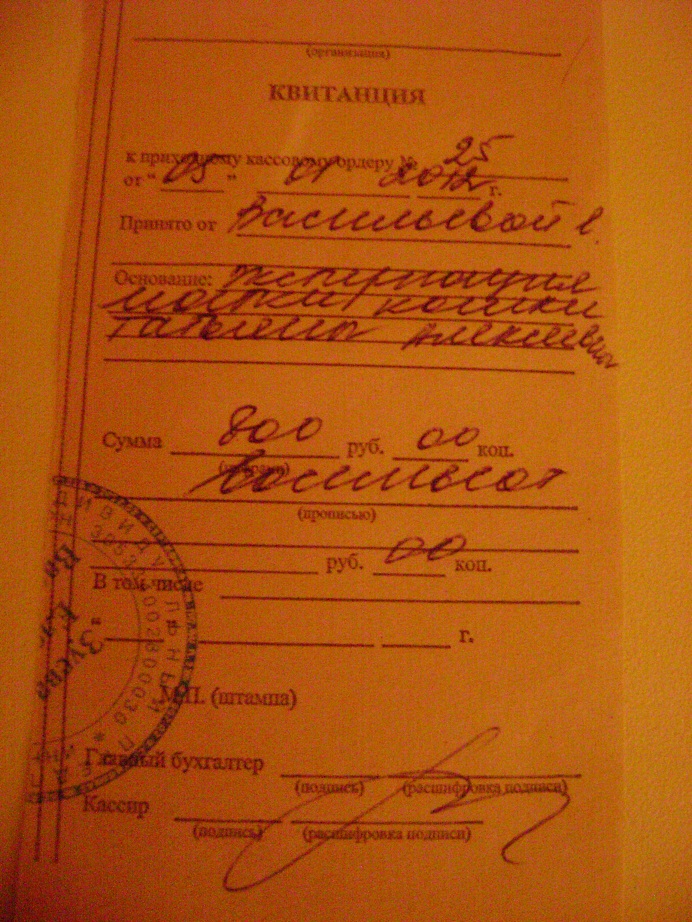 (организация)
КВИТАНЦИЯ
к приходному кассовому ордеру № 25
от " 05 " 01 2012 г.
Принято от Васильевой Е.
Основание: экстирпация
матки кошки
Татьяны Алексеевны
Сумма 800 руб. 00 коп.
(цифрами)
Восемьсот
(прописью)
руб. 00 коп.
В том числе
" " г.
М.П. (штампа)
Главный бухгалтер
(подпись) (расшифровка подписи)
Кассир
(подпись) (расшифровка подписи)